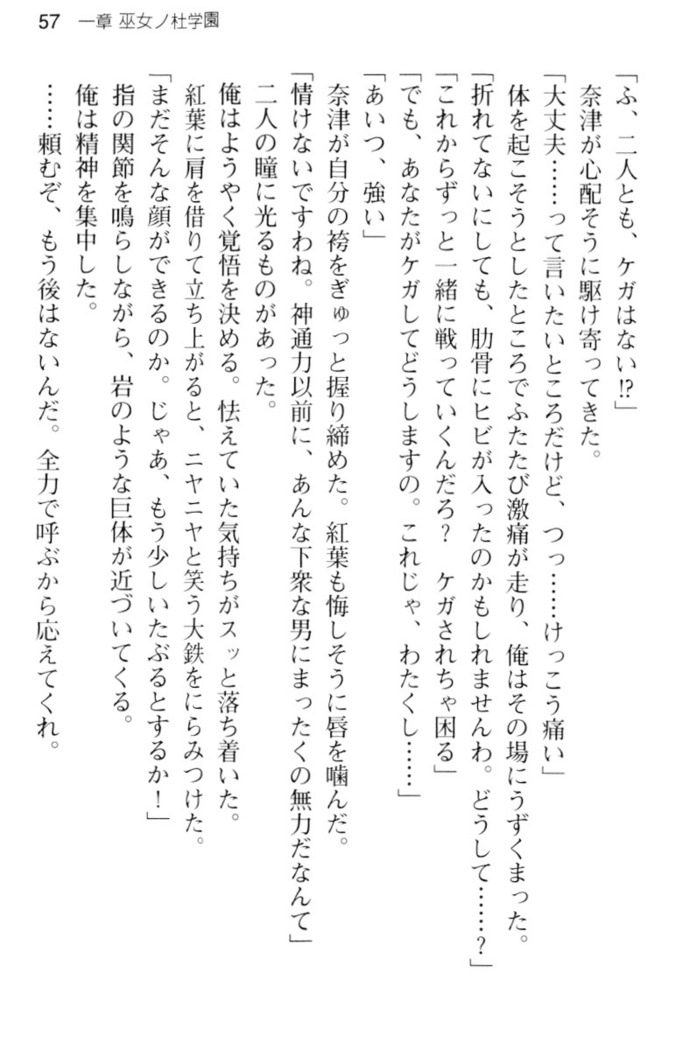 57 一章 巫女ノ杜学園
「ふ、二人とも、ケガはない!?」
奈津が心配そうに駆け寄ってきた。
「大丈夫……って言いたいところだけど、つっ……けっこう痛い」
体を起こそうとしたところでふたたび激痛が走り、俺はその場にうずくまった。
「折れてないにしても、肋骨にヒビが入ったのかもしれませんわ。どうして……?」
「これからずっと一緒に戦っていくんだろ? ケガされちゃ困る」
「でも、あなたがケガしてどうしますの。これじゃ、わたくし……」
「あいつ、強い」
奈津が自分の袴をぎゅっと握り締めた。紅葉も悔しそうに唇を噛んだ。
「情けないですわね。神通力以前に、あんな下衆な男にまったくの無力だなんて」
二人の瞳に光るものがあった。
俺はようやく覚悟を決める。怯えていた気持ちがスッと落ち着いた。
紅葉に肩を借りて立ち上がると、ニヤニヤと笑う大鉄をにらみつけた。
「まだそんな顔ができるのか。じゃあ、もう少しいたぶるとするか!」
指の関節を鳴らしながら、岩のような巨体が近づいてくる。
俺は精神を集中した。
……頼むぞ、もう後はないんだ。全力で呼ぶから応えてくれ。